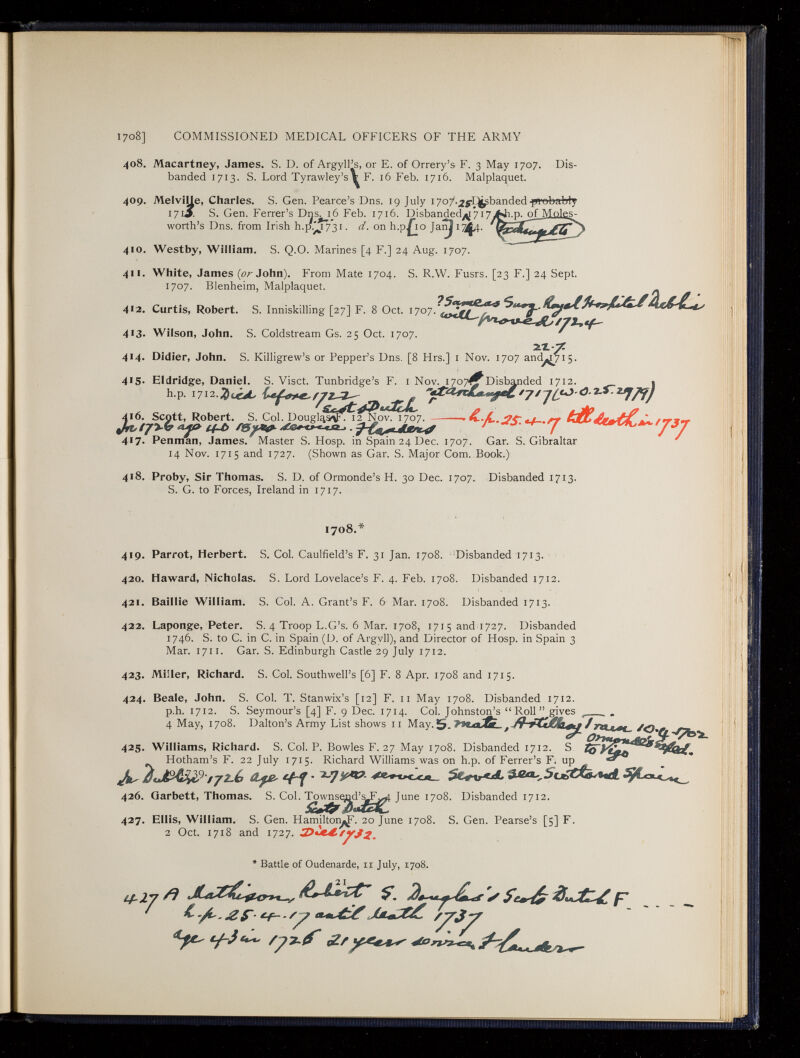 1708] COMMISSIONED MEDICAL OFFICERS OF THE ARMY
408. Macartney, James. S. D. of Argyll's, or E. of Orrery's F. 3 May 1707. Dis-
banded 1713. S. Lord Tyrawley's F. 16 Feb. 1716. Malplaquet.
409. Melville, Charles. S. Gen. Pearce's Dns. 19 July 1707. Disbanded probably
171 . S. Gen. Ferrer's Dns. 16 Feb. 1716. Disbanded 1717 h.p. of Moles-
worth's Dns. from Irish h.p. 1731. d. on h.p. 10 Jan. 1744.
410. Westby, William. S. Q.O. Marines [4 F.] 24 Aug. 1707.
411. White, James (or John). From Mate 1704. S. R.W. Fusrs. [23 F.] 24 Sept.
1707. Blenheim, Malplaquet.
? Same as Surg. Royal Hospital Dublin
412. Curtis, Robert. S. Inniskilling [27] F. 8 Oct. 1707. will proved 1724
413. Wilson, John. S. Coldstream Gs. 25 Oct. 1707.
22.7.
414. Didier, John. S. Killigrew's or Pepper's Dns. [8 Hrs.] 1 Nov. 1707 and 1715.
415. Eldridge, Daniel. S. Visct. Tunbridge's F. 1 Nov. 1707 Disbanded 1712.
h.p. 1712. Died before 1722 at Archangel 1717 (W.O.25.2979)
Scots Dutch
416. Scott, Robert. S. Col. Douglas' F. 12 Nov. 1707. h.p. 25.4.17 till death in 1737
In 1726 age 40 18 yrs service. Flanders
417. Penman, James. Master S. Hosp. in Spain 24 Dec. 1707. Gar. S. Gibraltar
14 Nov. 1715 and 1727. (Shown as Gar. S. Major Com. Book.)
418. Proby, Sir Thomas. S. D. of Ormonde's H. 30 Dec. 1707. Disbanded 1713.
S. G. to Forces, Ireland in 1717.
1708.*
419. Parrot, Herbert. S. Col. Caulfield's F. 31 Jan. 1708. Disbanded 1713.
420. Haward, Nicholas. S. Lord Lovelace's F. 4. Feb. 1708. Disbanded 1712.
421. Baillie William. S. Col. A. Grant's F. 6 Mar. 1708. Disbanded 1713.
422. Laponge, Peter. S. 4 Troop L.G's. 6 Mar. 1708, 1715 and 1727. Disbanded
1746. S. to C. in C. in Spain (D. of Argyll), and Director of Hosp. in Spain 3
Mar. 1711. Gar. S. Edinburgh Castle 29 July 1712.
423. Miller, Richard. S. Col. Southwell's [6] F. 8 Apr. 1708 and 1715.
424. Beale, John. S. Col. T. Stanwix's [12] F. 11 May 1708. Disbanded 1712.
p.h. 1712. S. Seymour's [4] F. 9 Dec. 1714. Col. Johnston's "Roll" gives
4 May, 1708. Dalton's Army List shows 11 May. S. Mate, Artillery Train 10.4.1702
Ormonde's Exped.
425. Williams, Richard. S. Col. P. Bowles F. 27 May 1708. Disbanded 1712. S to Vigo
Hotham's F. 22 July 1715. Richard Williams was on h.p. of Ferrer's F. up
In Dublin 1739. 1726 age 49. 27 yrs. service Served Sea, Scotland Spain
426. Garbett, Thomas. S. Col. Townsend's F. 4 June 1708. Disbanded 1712.
Scots Dutch
427. Ellis, William. S. Gen. Hamilton F. 20 June 1708. S. Gen. Pearse's [5] F.
2 Oct. 1718 and 1727. Died 1732.
* Battle of Oudenarde, 11 July, 1708.
21
427 A Mathison, Robert S. Douglas's Scots Dutch F
h.p. 25.4.17 until death 1737
Age 43 in 1726 21 years service, Flanders